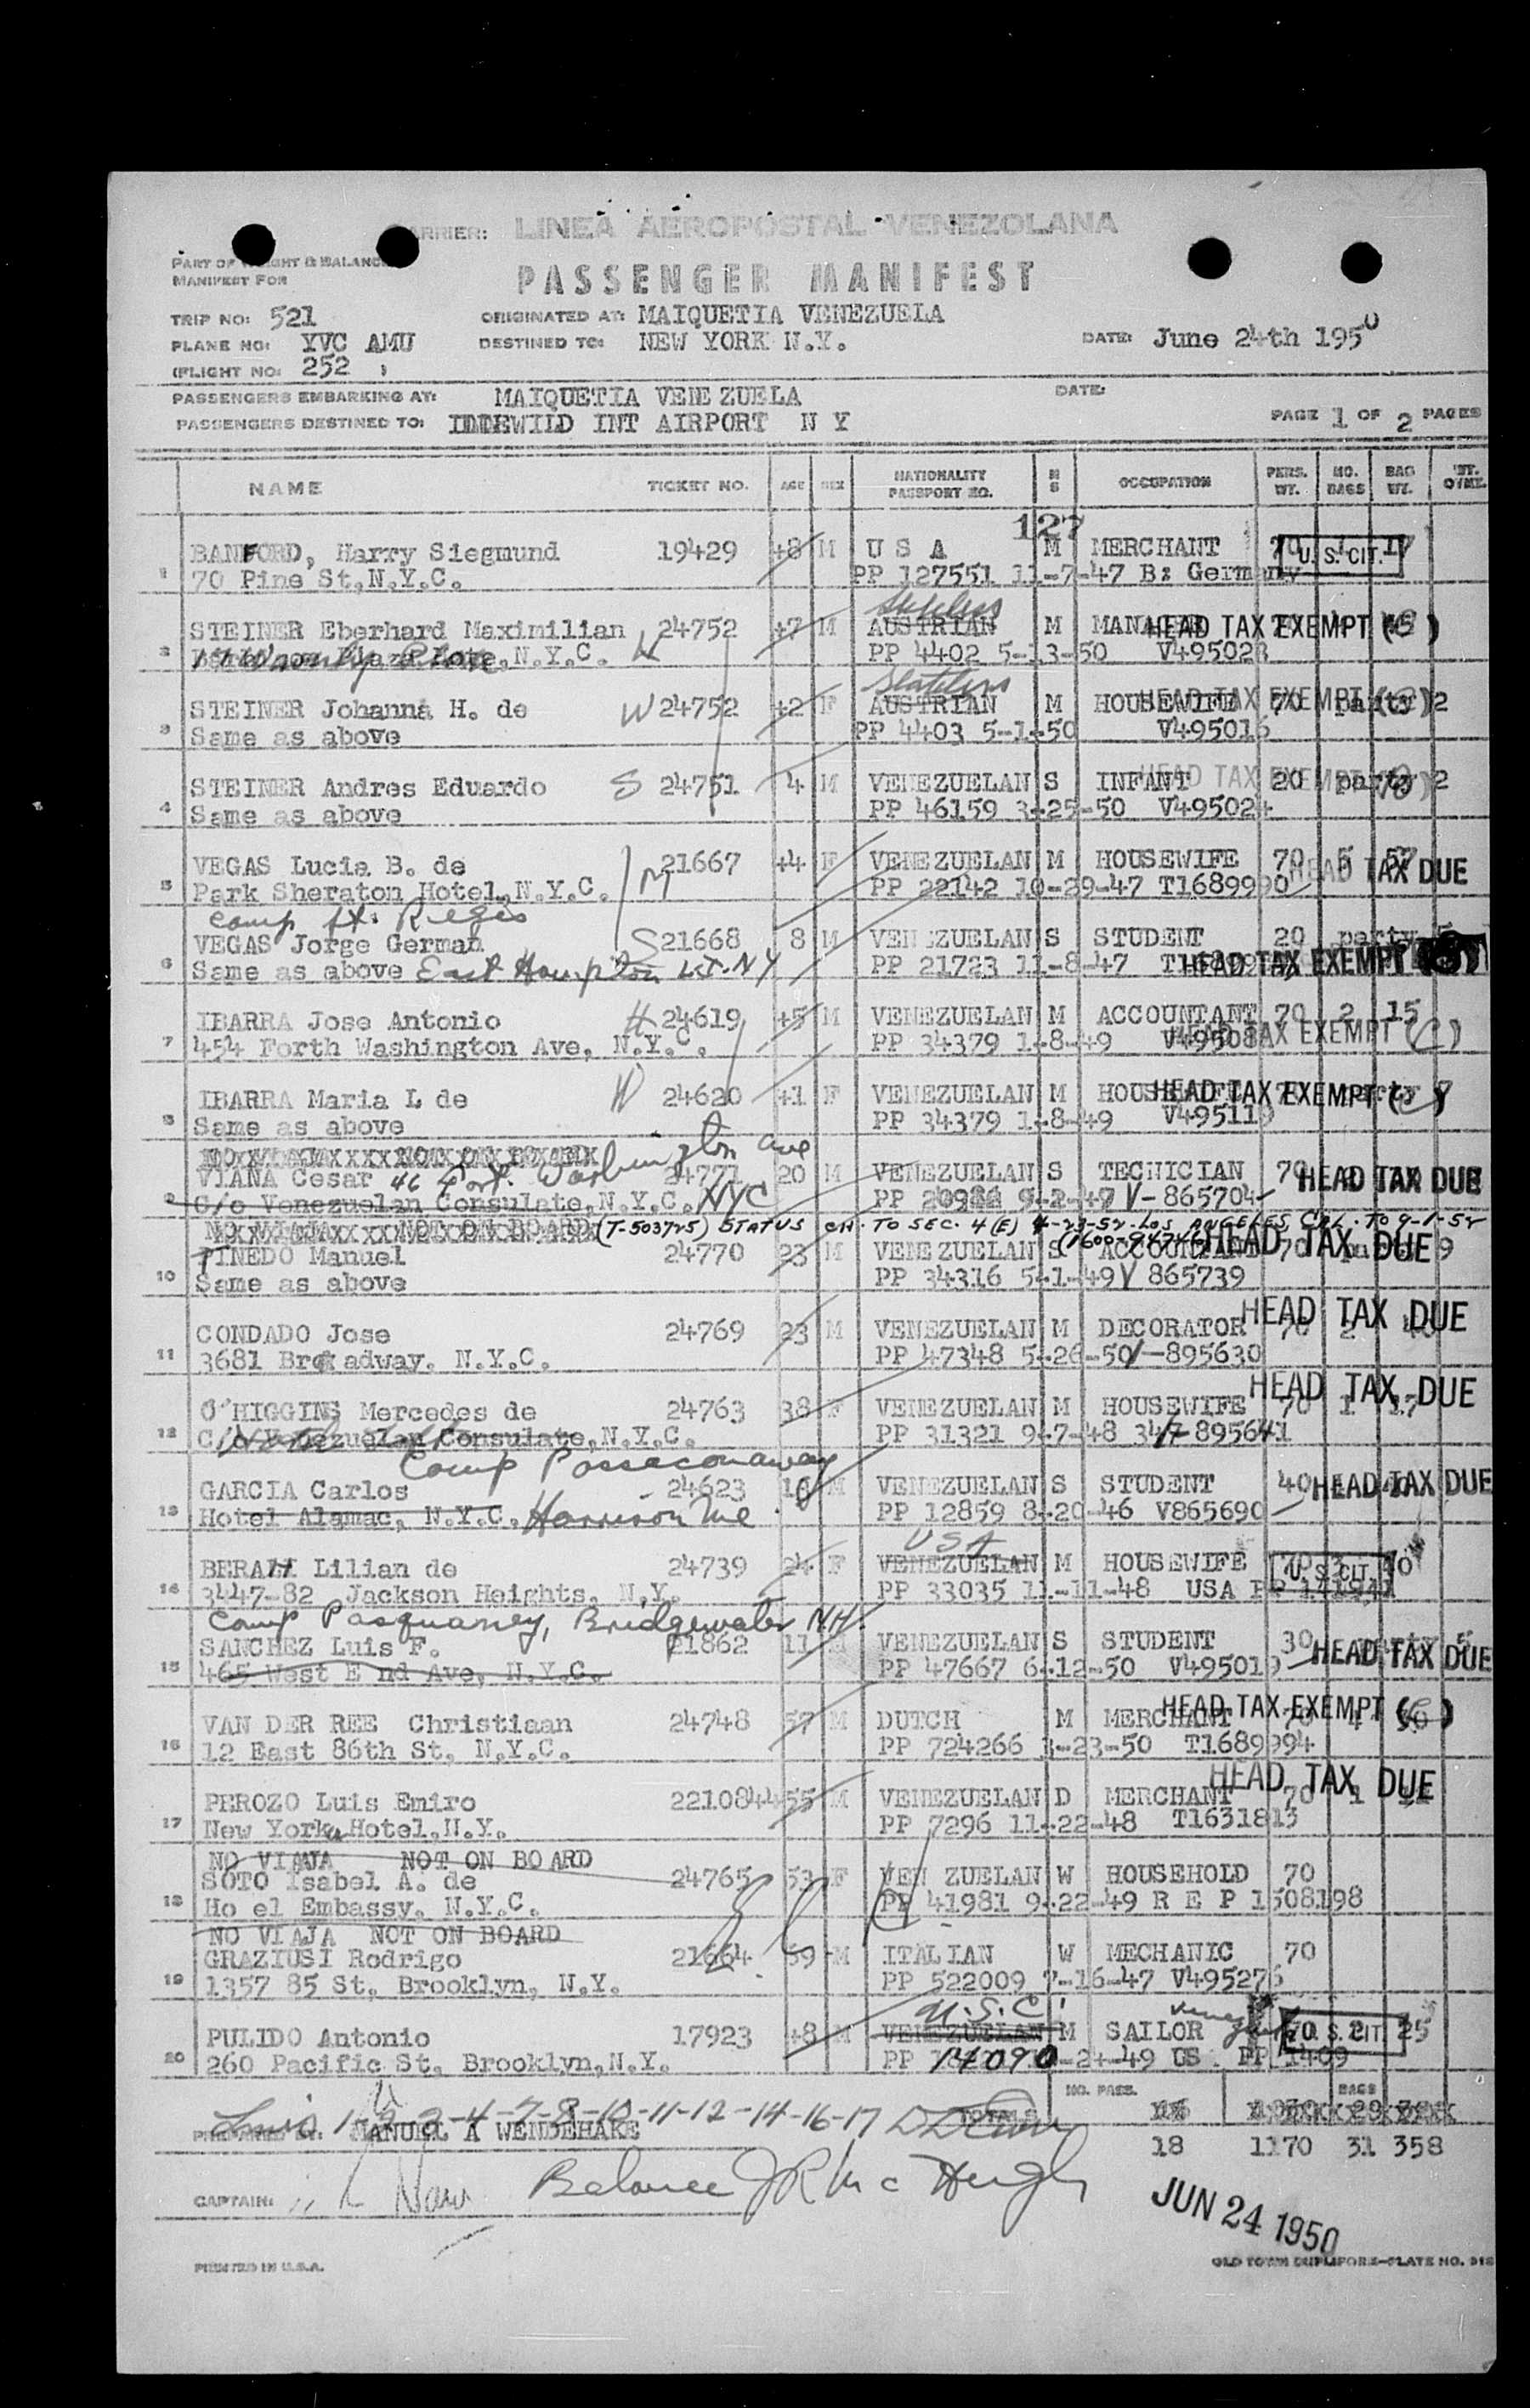 CARRIER: LINEA AEROPOSTAL VENEZOLANA
PART OF WEIGHT & BALANCE
MANIFEST FOR
PASSENGER MANIFEST
TRIP NO: 521 ORIGINATED AT: MAIQUETIA VENEZUELA
PLANE NO: YVC AMU DESTINED TO: NEW YORK N.Y. DATE: June 24th 1950
(FLIGHT NO: 252 )
PASSENGERS EMBARKING AT: MAIQUETIA VENEZUELA DATE:
PASSENGERS DESTINED TO: IDLEWILD INT AIRPORT N Y PAGE 1 OF 2 PAGES
NAME TICKET NO. AGE SEX NATIONALITY PASSPORT NO. M S OCCUPATION PERS. WT. NO. BAGS BAG WT.
127
BANFORD, Harry Siegmund 19429 48 M U S A M MERCHANT 70 17 U. S. CIT.
1 70 Pine St,N.Y.C. PP 127551 11-7-47 B: Germany
Stateless
STEINER Eberhard Maximilian 24752 47 M AUSTRIAN M MANAGER HEAD TAX EXEMPT ( )
2 N.Y.C. W PP 4402 5-13-50 V495023
Stateless
STEINER Johanna H. de W 24752 42 F AUSTRIAN M HOUSEWIFE 70 party 2 HEAD TAX EXEMPT
3 Same as above PP 4403 5-1-50 V495016
STEINER Andres Eduardo S 24751 4 M VENEZUELAN S INFANT 20 party 2 HEAD TAX EXEMPT
4 Same as above PP 46159 3-25-50 V495024
VEGAS Lucia B. de 21667 44 F VENEZUELAN M HOUSEWIFE 70 5 57
5 Park Sheraton Hotel,N.Y.C. M PP 22142 10-29-47 T1689990 HEAD TAX DUE
Camp St. Regis
VEGAS Jorge German S 21668 8 M VENEZUELAN S STUDENT 20 party 5
6 Same as above East Hampton L.I. NY PP 21723 11-8-47 HEAD TAX EXEMPT
IBARRA Jose Antonio H 24619 45 M VENEZUELAN M ACCOUNTANT 70 2 15
7 454 Forth Washington Ave, N.Y.C. PP 34379 1-8-49 V495081 HEAD TAX EXEMPT (C)
IBARRA Maria L de W 24620 41 F VENEZUELAN M HOUSEWIFE HEAD TAX EXEMPT (C)
8 Same as above PP 34379 1-8-49 V495119
VIANA Cesar 46 Fort. Washington Ave 24771 20 M VENEZUELAN S TECHICIAN 70 HEAD TAX DUE
9 C/o Venezuelan Consulate,N.Y.C. NYC PP 9-2-47 V-865704
NO VIAJA NOT ON BOARD (T-503725) STATUS CH. TO SEC. 4 (E) 4-23-52-LOS ANGELES CAL. TO 9-1-52
PINEDO Manuel 24770 23 M VENEZUELAN S ACCOUNTANT 70 9 HEAD TAX DUE
10 Same as above PP 34316 5-1-49 V 865739
CONDADO Jose 24769 23 M VENEZUELAN M DECORATOR 70 2 HEAD TAX DUE
11 3681 Broadway. N.Y.C. PP 47348 5-26-50 V-895630
O'HIGGINS Mercedes de 24763 38 F VENEZUELAN M HOUSEWIFE 70 1 17 HEAD TAX DUE
12 C/o Venezuelan Consulate,N.Y.C. PP 31321 9-7-48 895641
Camp Passaconaway
GARCIA Carlos 24623 16 M VENEZUELAN S STUDENT 40 HEAD TAX DUE
13 Hotel Alamac, N.Y.C. Harrison Me PP 12859 8-20-46 V865690
USA
BERAH Lilian de 24739 24 F VENEZUELAN M HOUSEWIFE 70 U. S. CIT.
14 3447-82 Jackson Heights, N.Y. PP 33035 11-11-48 USA PP
Camp Pasquaney, Bridgewater N.H.
SANCHEZ Luis F. 21862 11 M VENEZUELAN S STUDENT 30 5
15 465 West End Ave, N.Y.C. PP 47667 6-12-50 V495019 HEAD TAX DUE
VAN DER REE Christiaan 24748 57 M DUTCH M MERCHANT 70 HEAD TAX EXEMPT (C)
16 12 East 86th St, N.Y.C. PP 724266 3-23-50 T1689994
PEROZO Luis Emiro 2210844 55 M VENEZUELAN D MERCHANT 70 1 HEAD TAX DUE
17 New York Hotel,N.Y. PP 7296 11-22-48 T1631813
NO VIAJA NOT ON BOARD
SOTO Isabel A. de 24765 53 F VEN ZUELAN W HOUSEHOLD 70
18 Ho el Embassy. N.Y.C. PP 41981 9-22-49 R E P 1508198
NO VIAJA NOT ON BOARD
GRAZIUSI Rodrigo 21664 59 M ITALIAN W MECHANIC 70
19 1357 85 St, Brooklyn, N.Y. PP 522009 7-16-47 V495276
U.S.C.
PULIDO Antonio 17923 48 M VENEZUELAN M SAILOR 70 2 25 U. S. CIT.
20 260 Pacific St, Brooklyn,N.Y. PP 14090 -24-49 US PP 1409
NO. PASS. BAGS
1-2-3-4-7-8-10-11-12-14-16-17
MANUEL A WENDEHAKE
18 1170 31 358
CAPTAIN: Balance J R McHugh
JUN 24 1950
PRINTED IN U.S.A. OLD TOWN DUPLIFORM—PLATE NO.